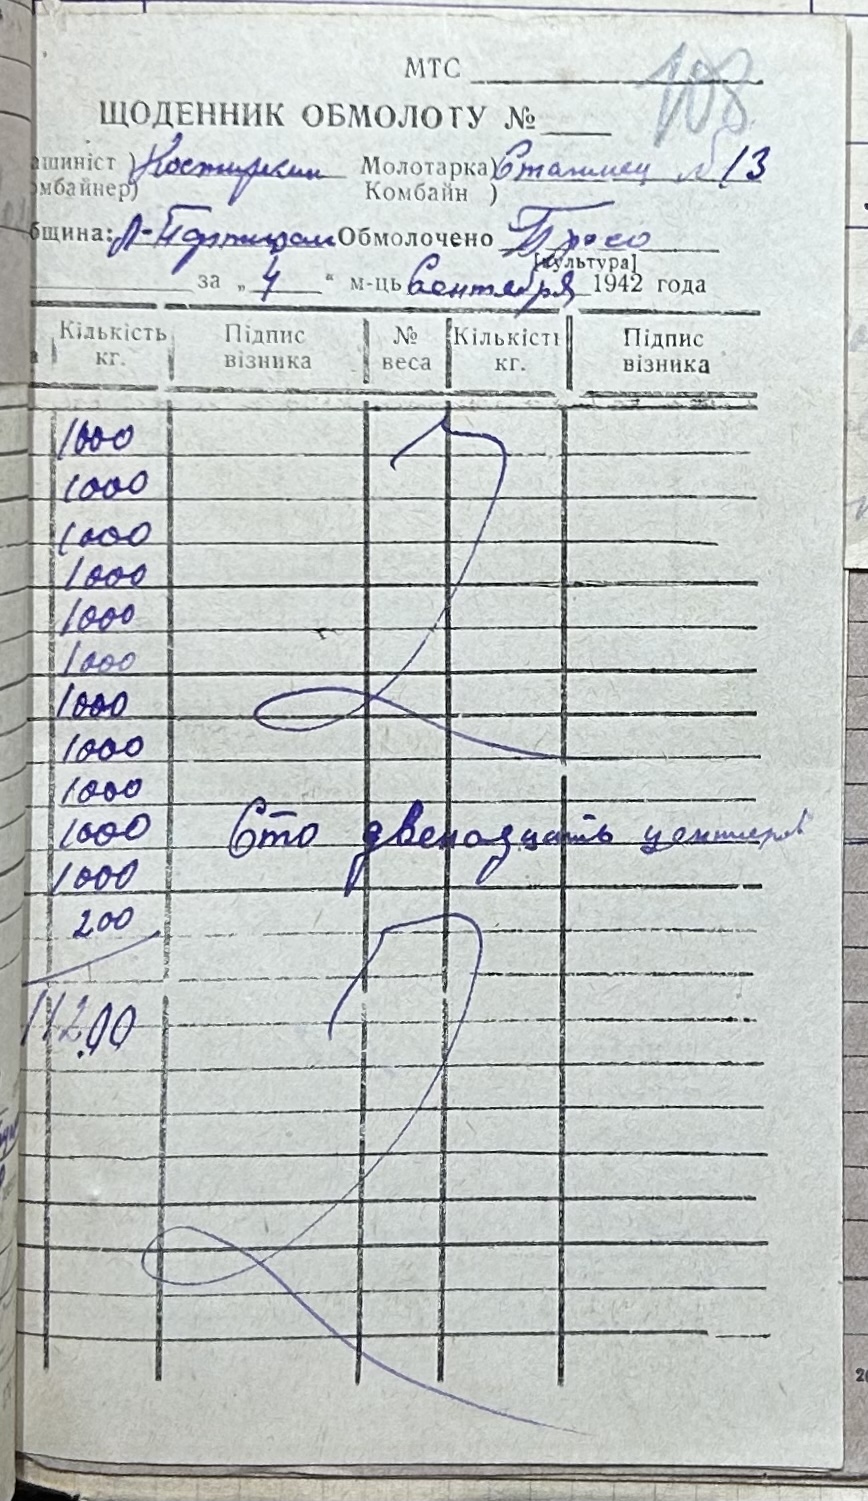 108
МТС
ЩОДЕННИК ОБМОЛОТУ №
ашиніст ) Костиркин Молотарка) Сталинец № 13
омбайнер) Комбайн )
бщина: Обмолочено Просо
[культура]
за „ 4 “ м-ць Сентября 1942 года
Кількість кг. Підпис візника № веса Кількість кг. Підпис візника
1000
1000
1000
1000
1000
1000
1000
1000
1000
1000 Сто двенадцать центнеров
1000
200
11200